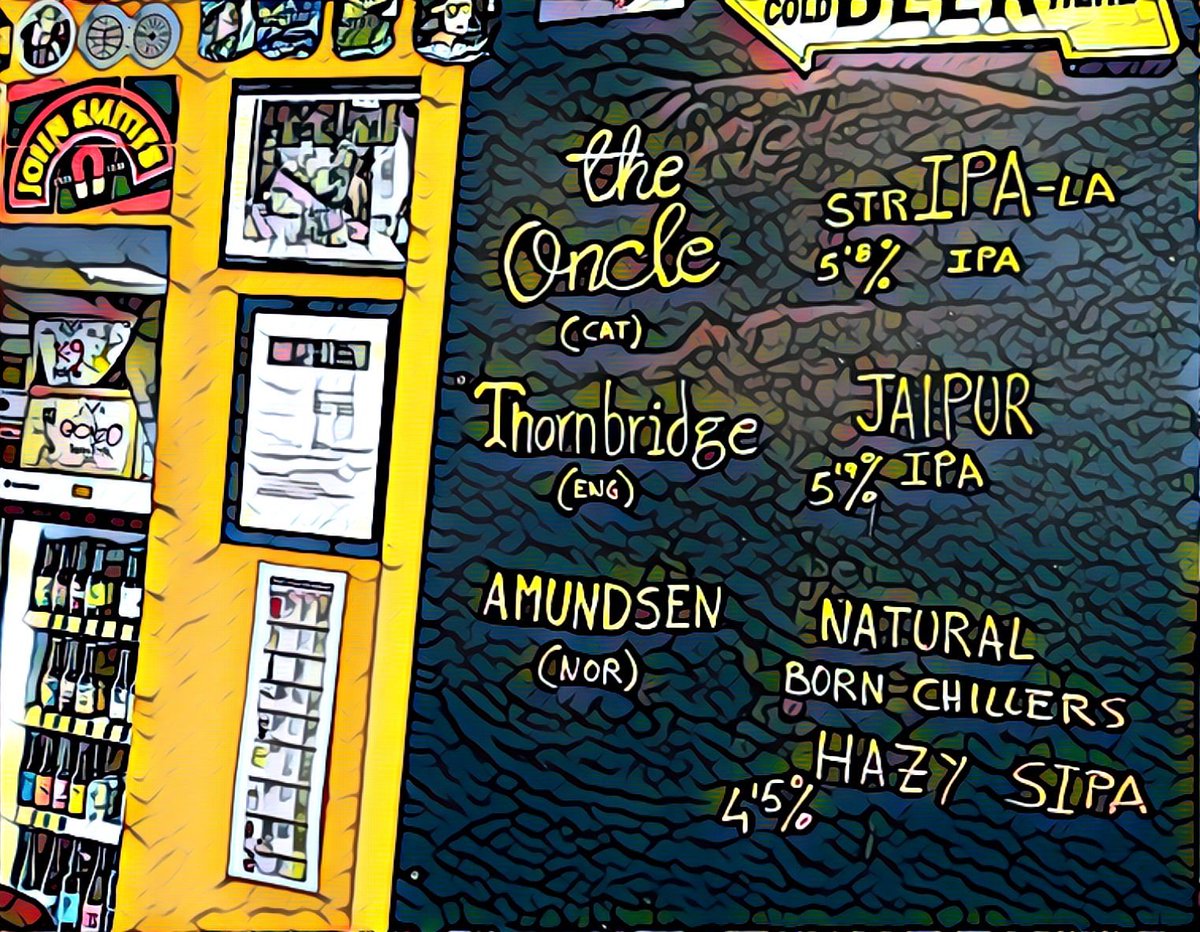 COLD BEER HERE
JOHN SMITH'S
the
Oncle
(CAT)
STRIPA-LA
5'8% IPA
Thornbridge
(ENG)
JAIPUR
5'9% IPA
AMUNDSEN
(NOR)
NATURAL
BORN CHILLERS
HAZY SIPA
4'5%
K9